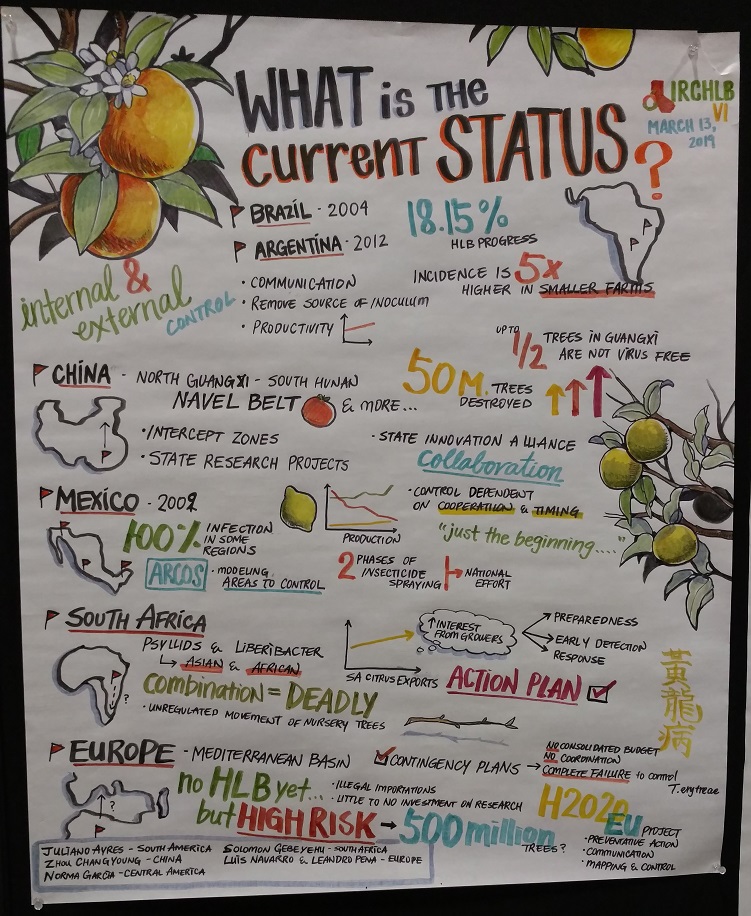 WHAT is THE
current STATUS?
IRCHLB
VI
MARCH 13,
2019
BRAZIL - 2004
ARGENTINA - 2012
18.15%
HLB PROGRESS
INCIDENCE IS 5x
HIGHER IN SMALLER FARMS
internal &
external
CONTROL
• COMMUNICATION
• REMOVE SOURCE OF INOCULUM
• PRODUCTIVITY
UP TO 1/2 TREES IN GUANGXI
ARE NOT VIRUS FREE
CHINA - NORTH GUANGXI - SOUTH HUNAN
NAVEL BELT & MORE...
50 M. TREES
DESTROYED
• INTERCEPT ZONES
• STATE RESEARCH PROJECTS
• STATE INNOVATION ALLIANCE
Collaboration
MEXICO - 2009
100% INFECTION
IN SOME
REGIONS
PRODUCTION
• CONTROL DEPENDENT
ON COOPERATION & TIMING
"just the beginning...."
ARCOS • MODELING
AREAS TO CONTROL
2 PHASES OF
INSECTICIDE
SPRAYING
NATIONAL
EFFORT
SOUTH AFRICA
PSYLLIDS & LIBERIBACTER
ASIAN & AFRICAN
combination = DEADLY
• UNREGULATED MOVEMENT OF NURSERY TREES
?
SA CITRUS EXPORTS
↑ INTEREST
FROM GROWERS
PREPAREDNESS
EARLY DETECTION
RESPONSE
ACTION PLAN
黃龍病
EUROPE - MEDITERRANEAN BASIN
?
CONTINGENCY PLANS →
NO CONSOLIDATED BUDGET
NO COORDINATION
COMPLETE FAILURE to control
T. erytreae
no HLB yet...
but HIGH RISK → 500 million
TREES?
• ILLEGAL IMPORTATIONS
• LITTLE TO NO INVESTMENT ON RESEARCH
H2020
EU PROJECT
• PREVENTATIVE ACTION
• COMMUNICATION
• MAPPING & CONTROL
JULIANO AYRES - SOUTH AMERICA
ZHOU CHANGYOUNG - CHINA
NORMA GARCIA - CENTRAL AMERICA
SOLOMON GEBEYEHU - SOUTH AFRICA
LUIS NAVARRO & LEANDRO PEÑA - EUROPE